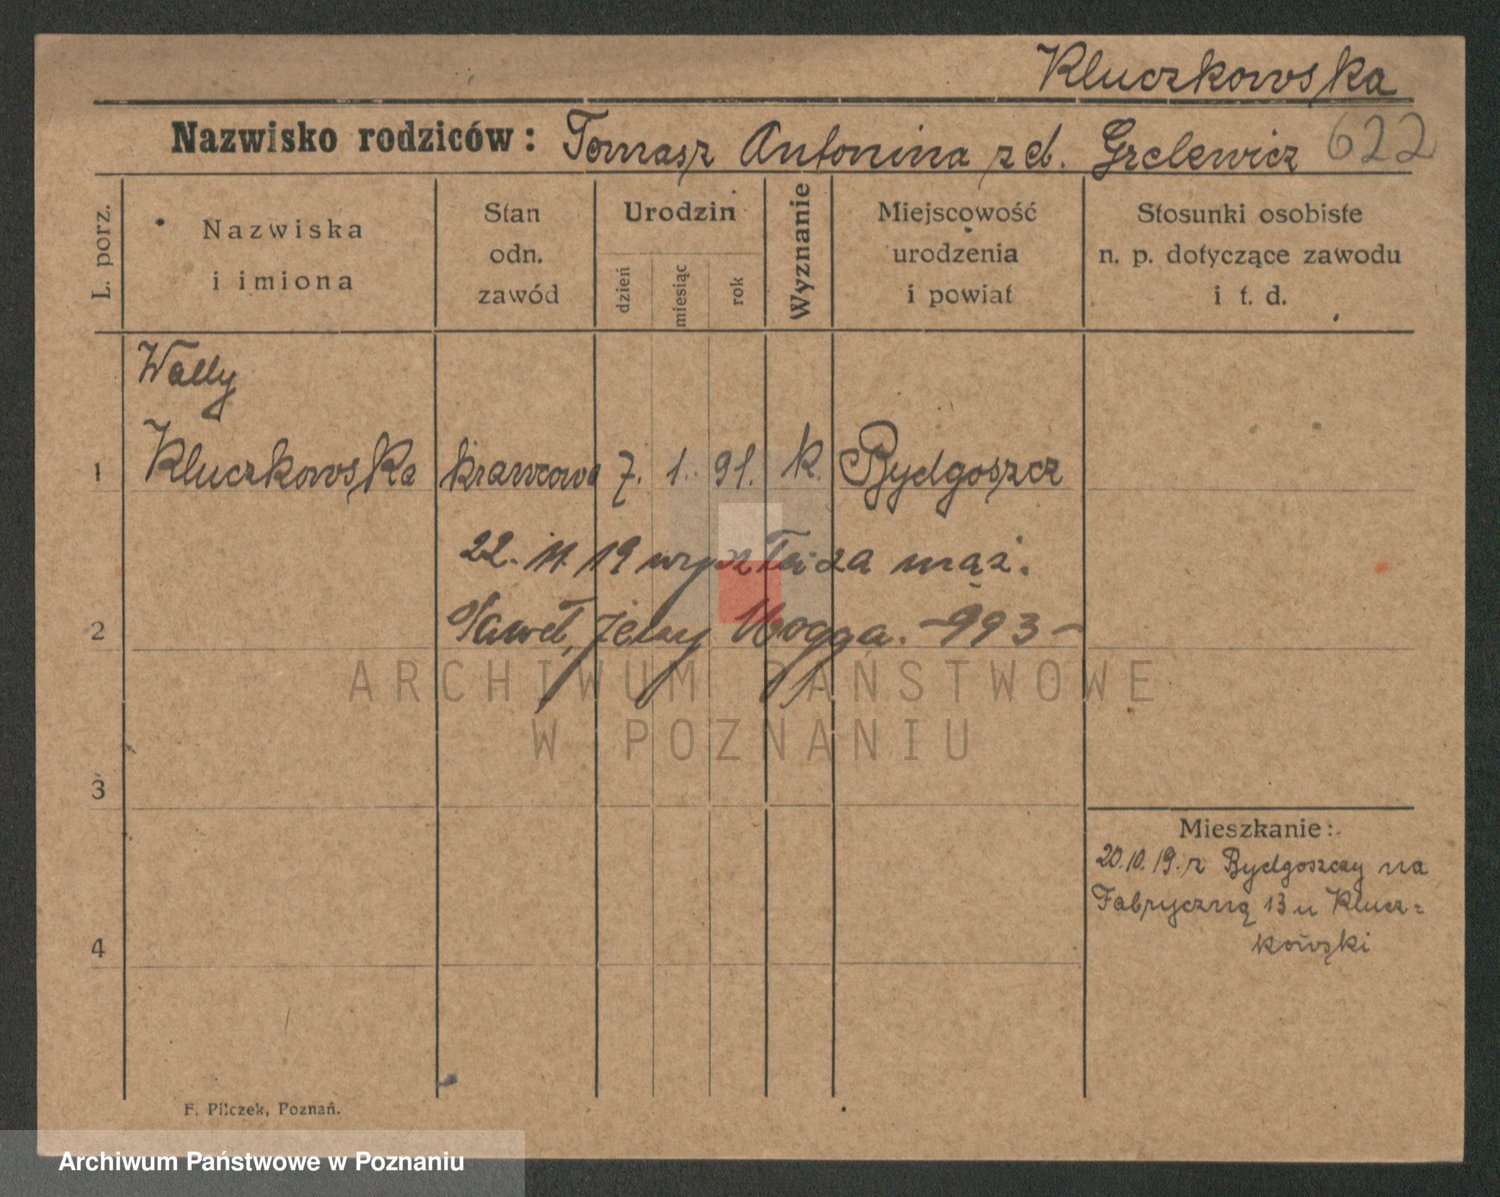 Kluczkowska
Nazwisko rodziców: Tomasz Antonina z d. Grelewicz 622
L. porz.
Nazwiska
i imiona
Stan
odn.
zawód
Urodzin
dzień
miesiąc
rok
Wyznanie
Miejscowość
urodzenia
i powiat
Stosunki osobiste
n. p. dotyczące zawodu
i t. d.
Wally
1 Kluczkowska krawcowa 7. 1. 91. k. Bydgoszcz
22. 11 19 wyszła za mąż.
2 Paweł, Jerzy Mogga. -993-
ARCHIWUM PAŃSTWOWE
W POZNANIU
3
Mieszkanie:
20.10.19. z Bydgoszczy na
Fabryczną 13 u Klucz=
kowski
4
F. Pilczek, Poznań.
Archiwum Państwowe w Poznaniu